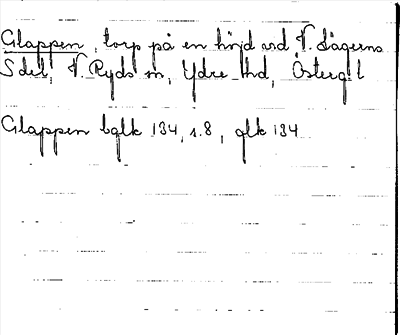 Glappen, torp på en höjd vid V. Lägerns
S del, V. Ryds sn, Ydre hd, Österg l
Glappen bglk 134, s. 8, glk 134